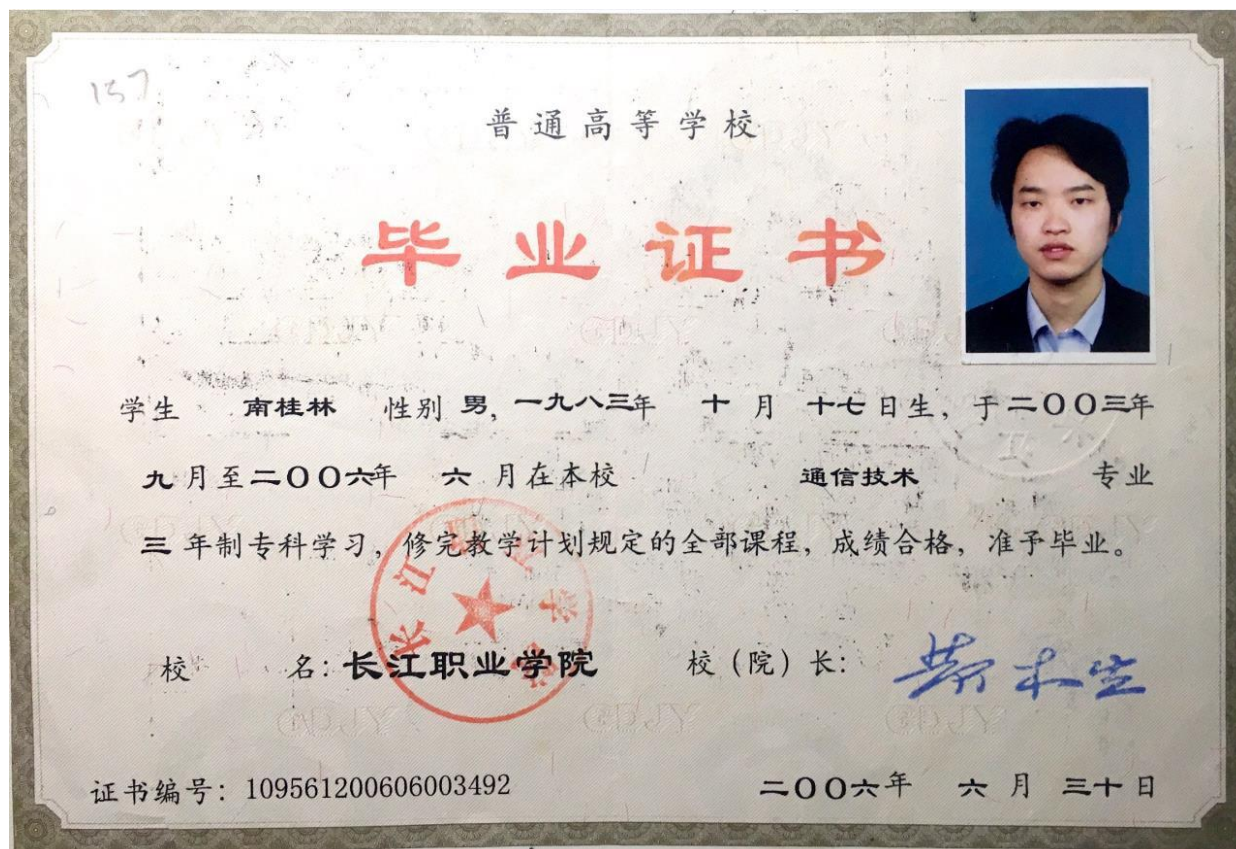 157
普通高等学校
毕业证书
学生 南桂林 性别 男, 一九八三年 十 月 十七 日生, 于二〇〇三年
九 月至二〇〇六年 六 月在本校 通信技术 专业
三 年制专科学习, 修完教学计划规定的全部课程, 成绩合格, 准予毕业。
长江职业学院
校 名: 长江职业学院 校(院)长:
证书编号: 109561200606003492 二〇〇六年 六 月 三十 日